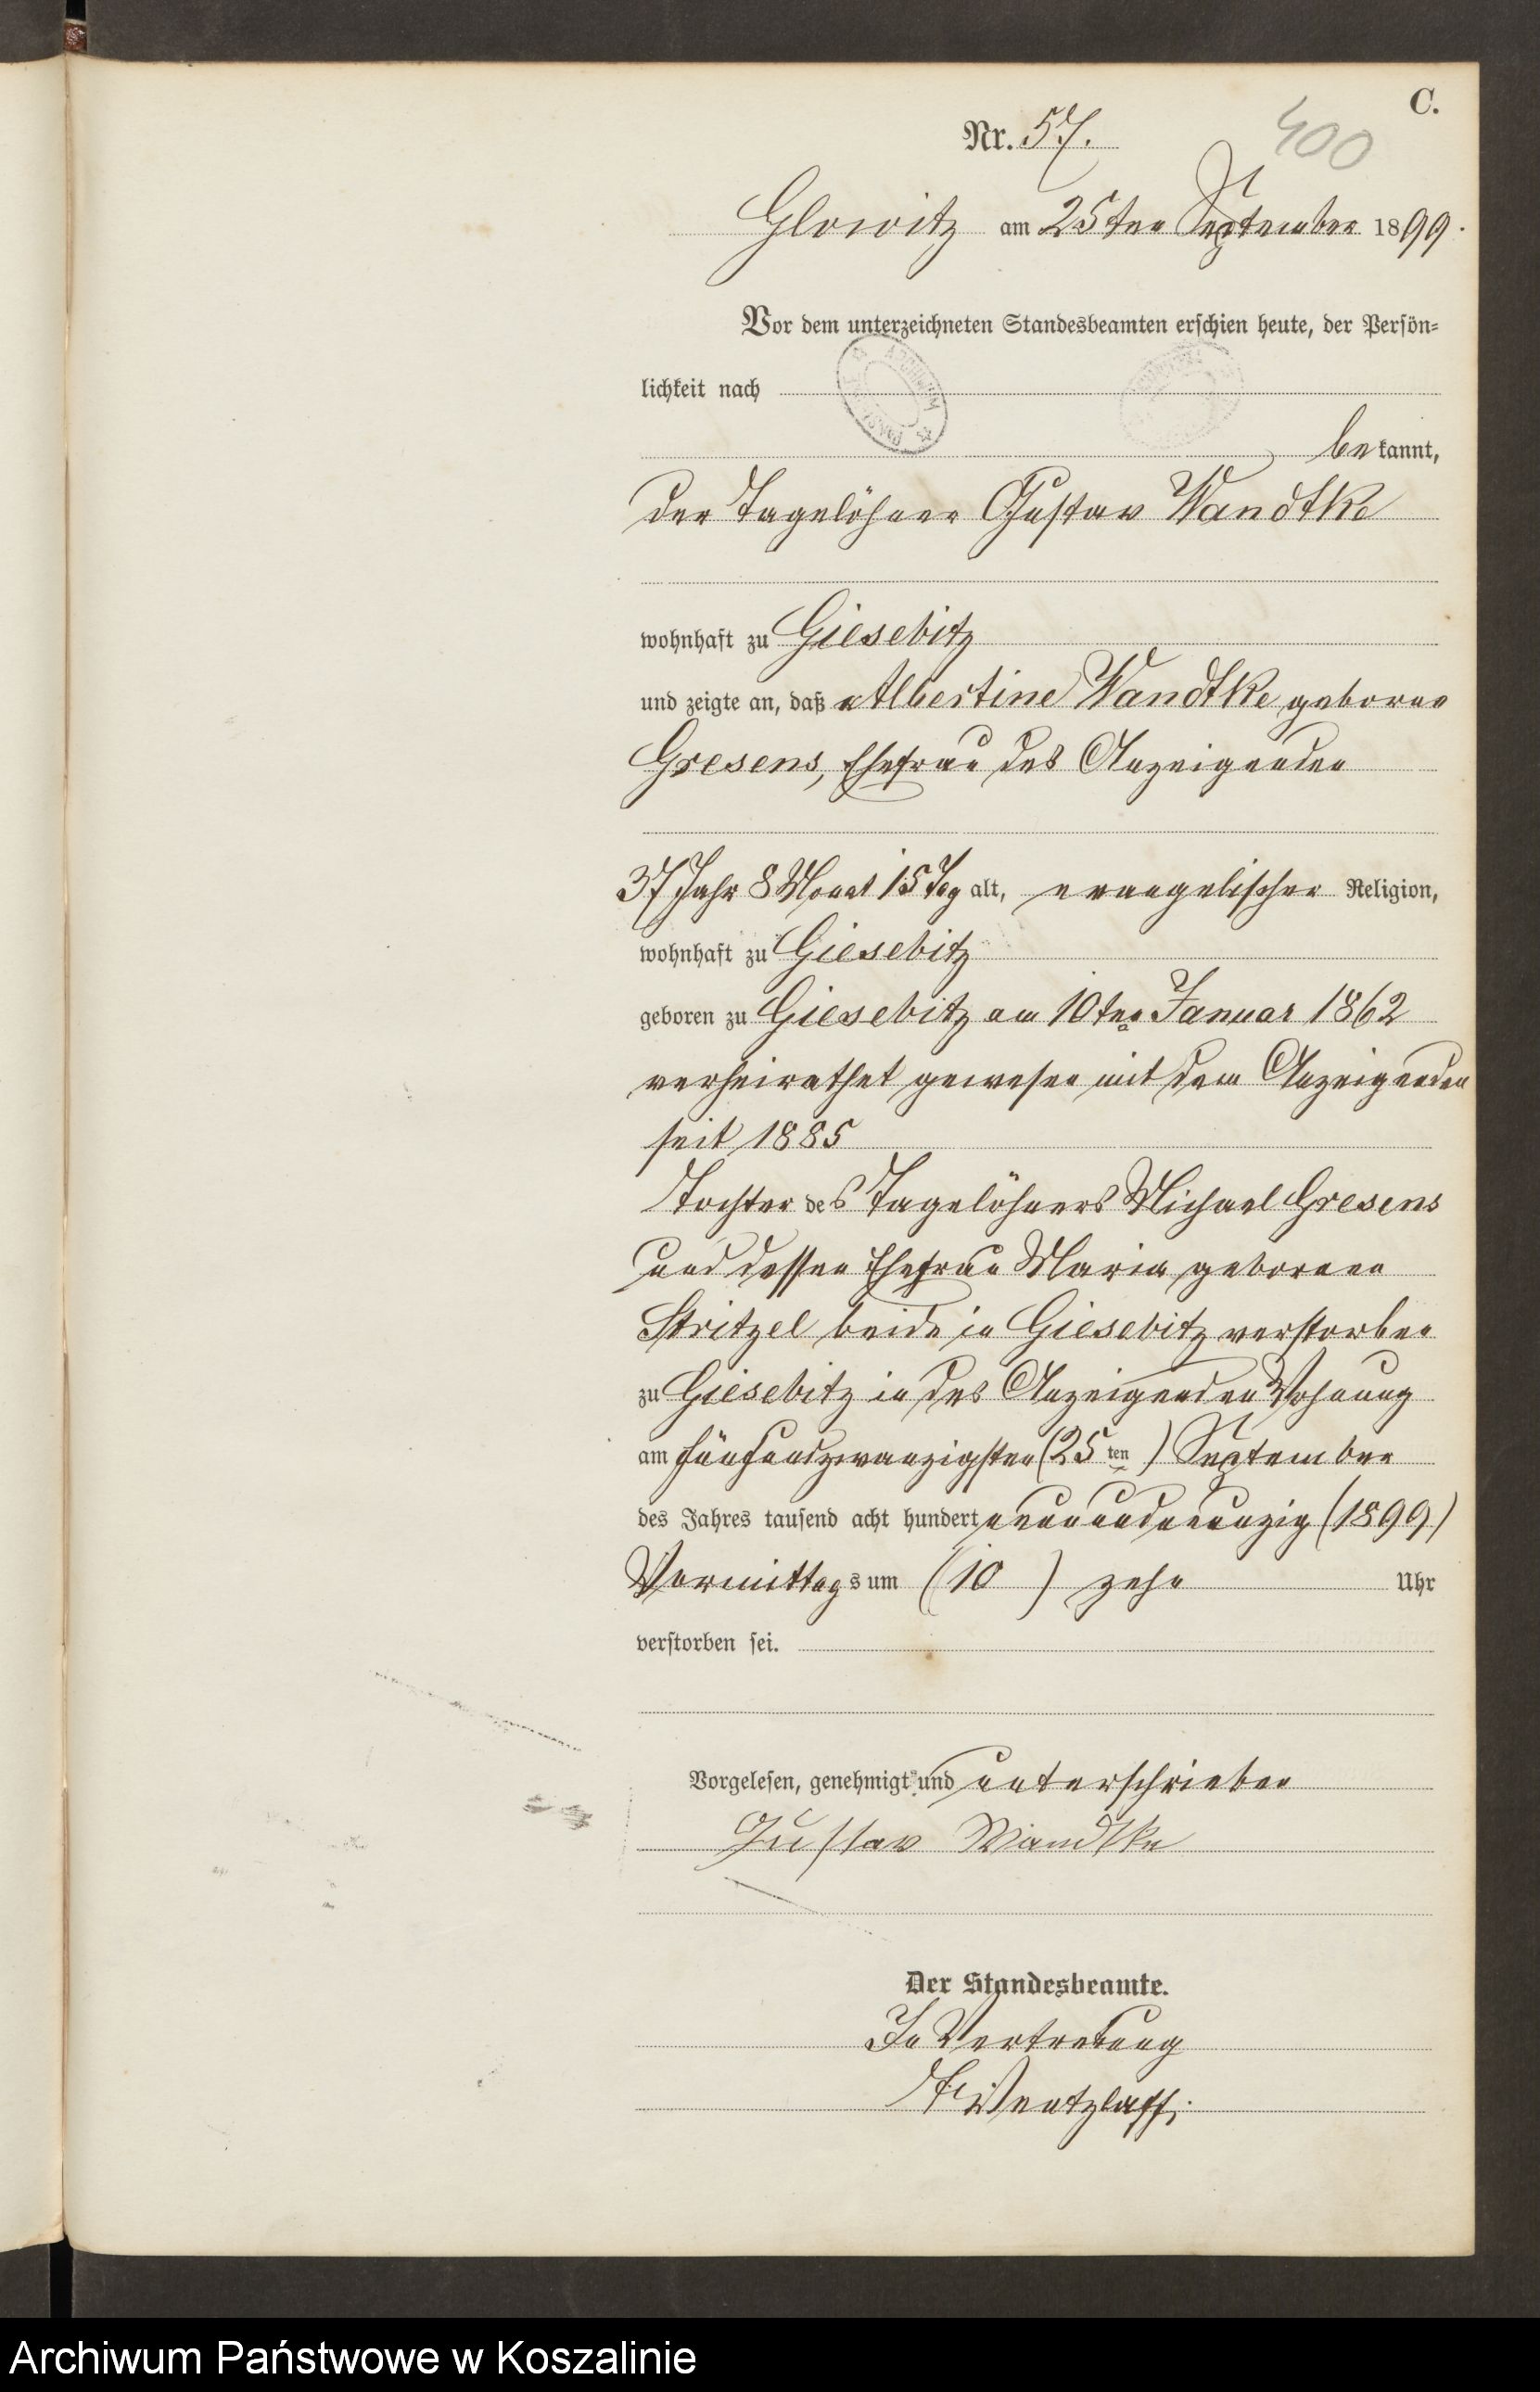 C.
Nr. 57.
400
Glowitz am 25ten September 1899.
Vor dem unterzeichneten Standesbeamten erschien heute, der Persön-
lichkeit nach
bekannt,
der Tagelöhner Gustav Wandtke
wohnhaft zu Giesebitz
und zeigte an, daß Albertine Wandtke geborne
Gresens, Ehefrau des Anzeigenden
37 Jahr 8 Monat 15 Tag alt, evangelischer Religion,
wohnhaft zu Giesebitz
geboren zu Giesebitz am 10ten Januar 1862
verheirathet gewesen mit dem Anzeigenden
seit 1885
Tochter des Tagelöhners Michael Gresens
und dessen Ehefrau Maria gebornen
Stritzel beide in Giesebitz verstorben
zu Giesebitz in des Anzeigenden Wohnung
am fünfundzwanzigsten (25ten) September
des Jahres tausend acht hundert neunundneunzig (1899)
Vormittags um (10) zehn Uhr
verstorben sei.
Vorgelesen, genehmigt und unterschrieben
Gustav Wandtke
Der Standesbeamte.
In Vertretung
Wentzlaff.
Archiwum Państwowe w Koszalinie